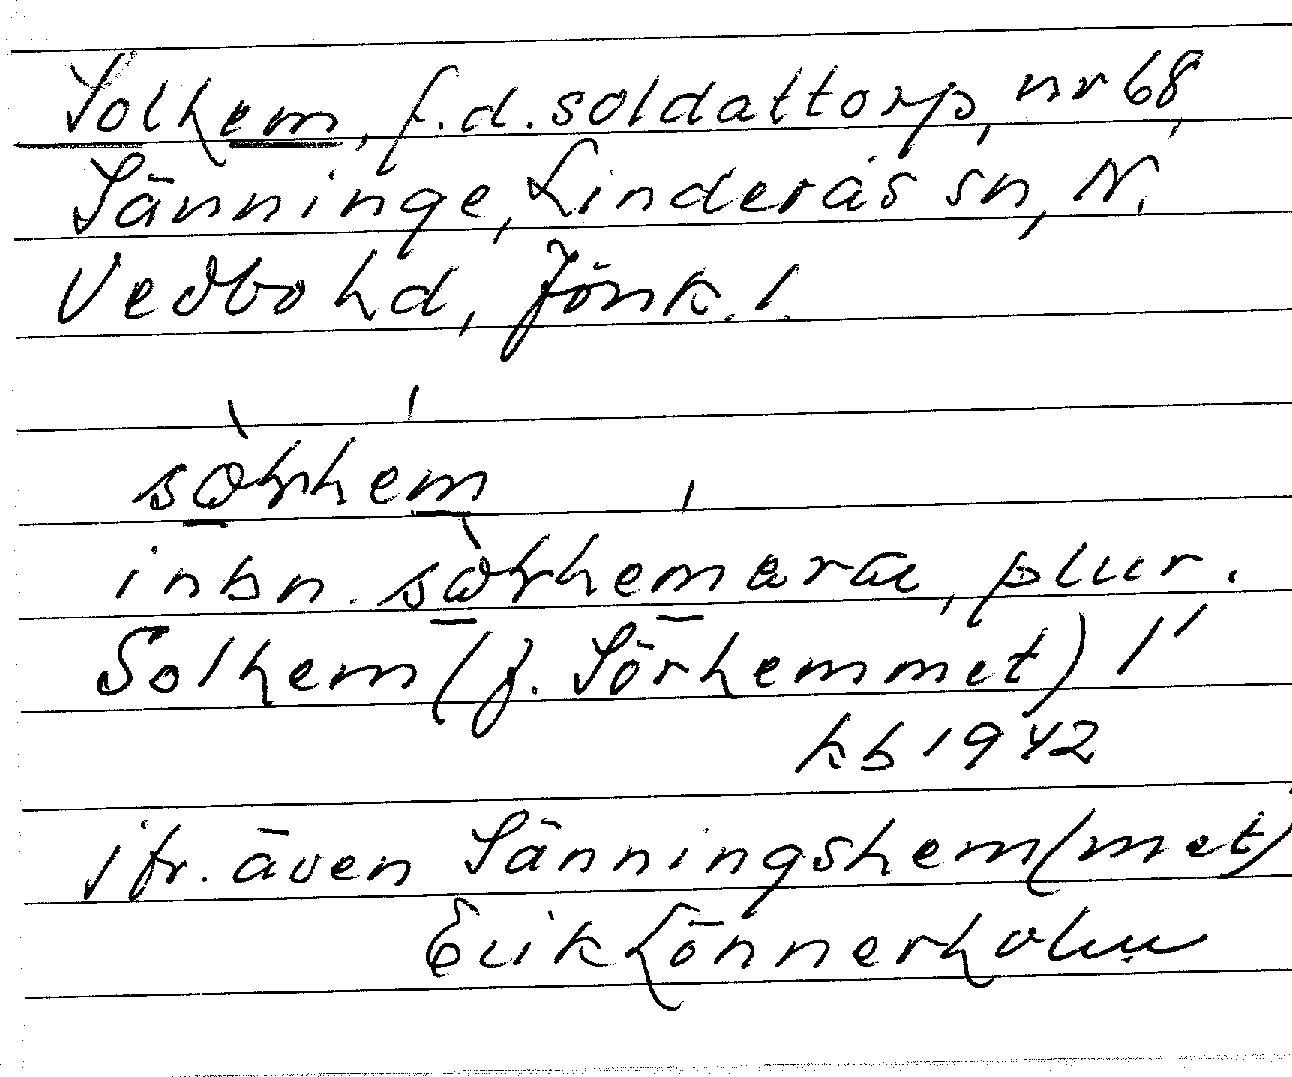 Solhem, f.d. soldattorp, nr 68,
Sänninge, Linderås sn, N.
Vedbo hd, Jönk. l.
inbn. , plur.
Solhem (f. Sörhemmet) l'
kb 1942
jfr. även Sänningshem(met)
Erik Lönnerholm